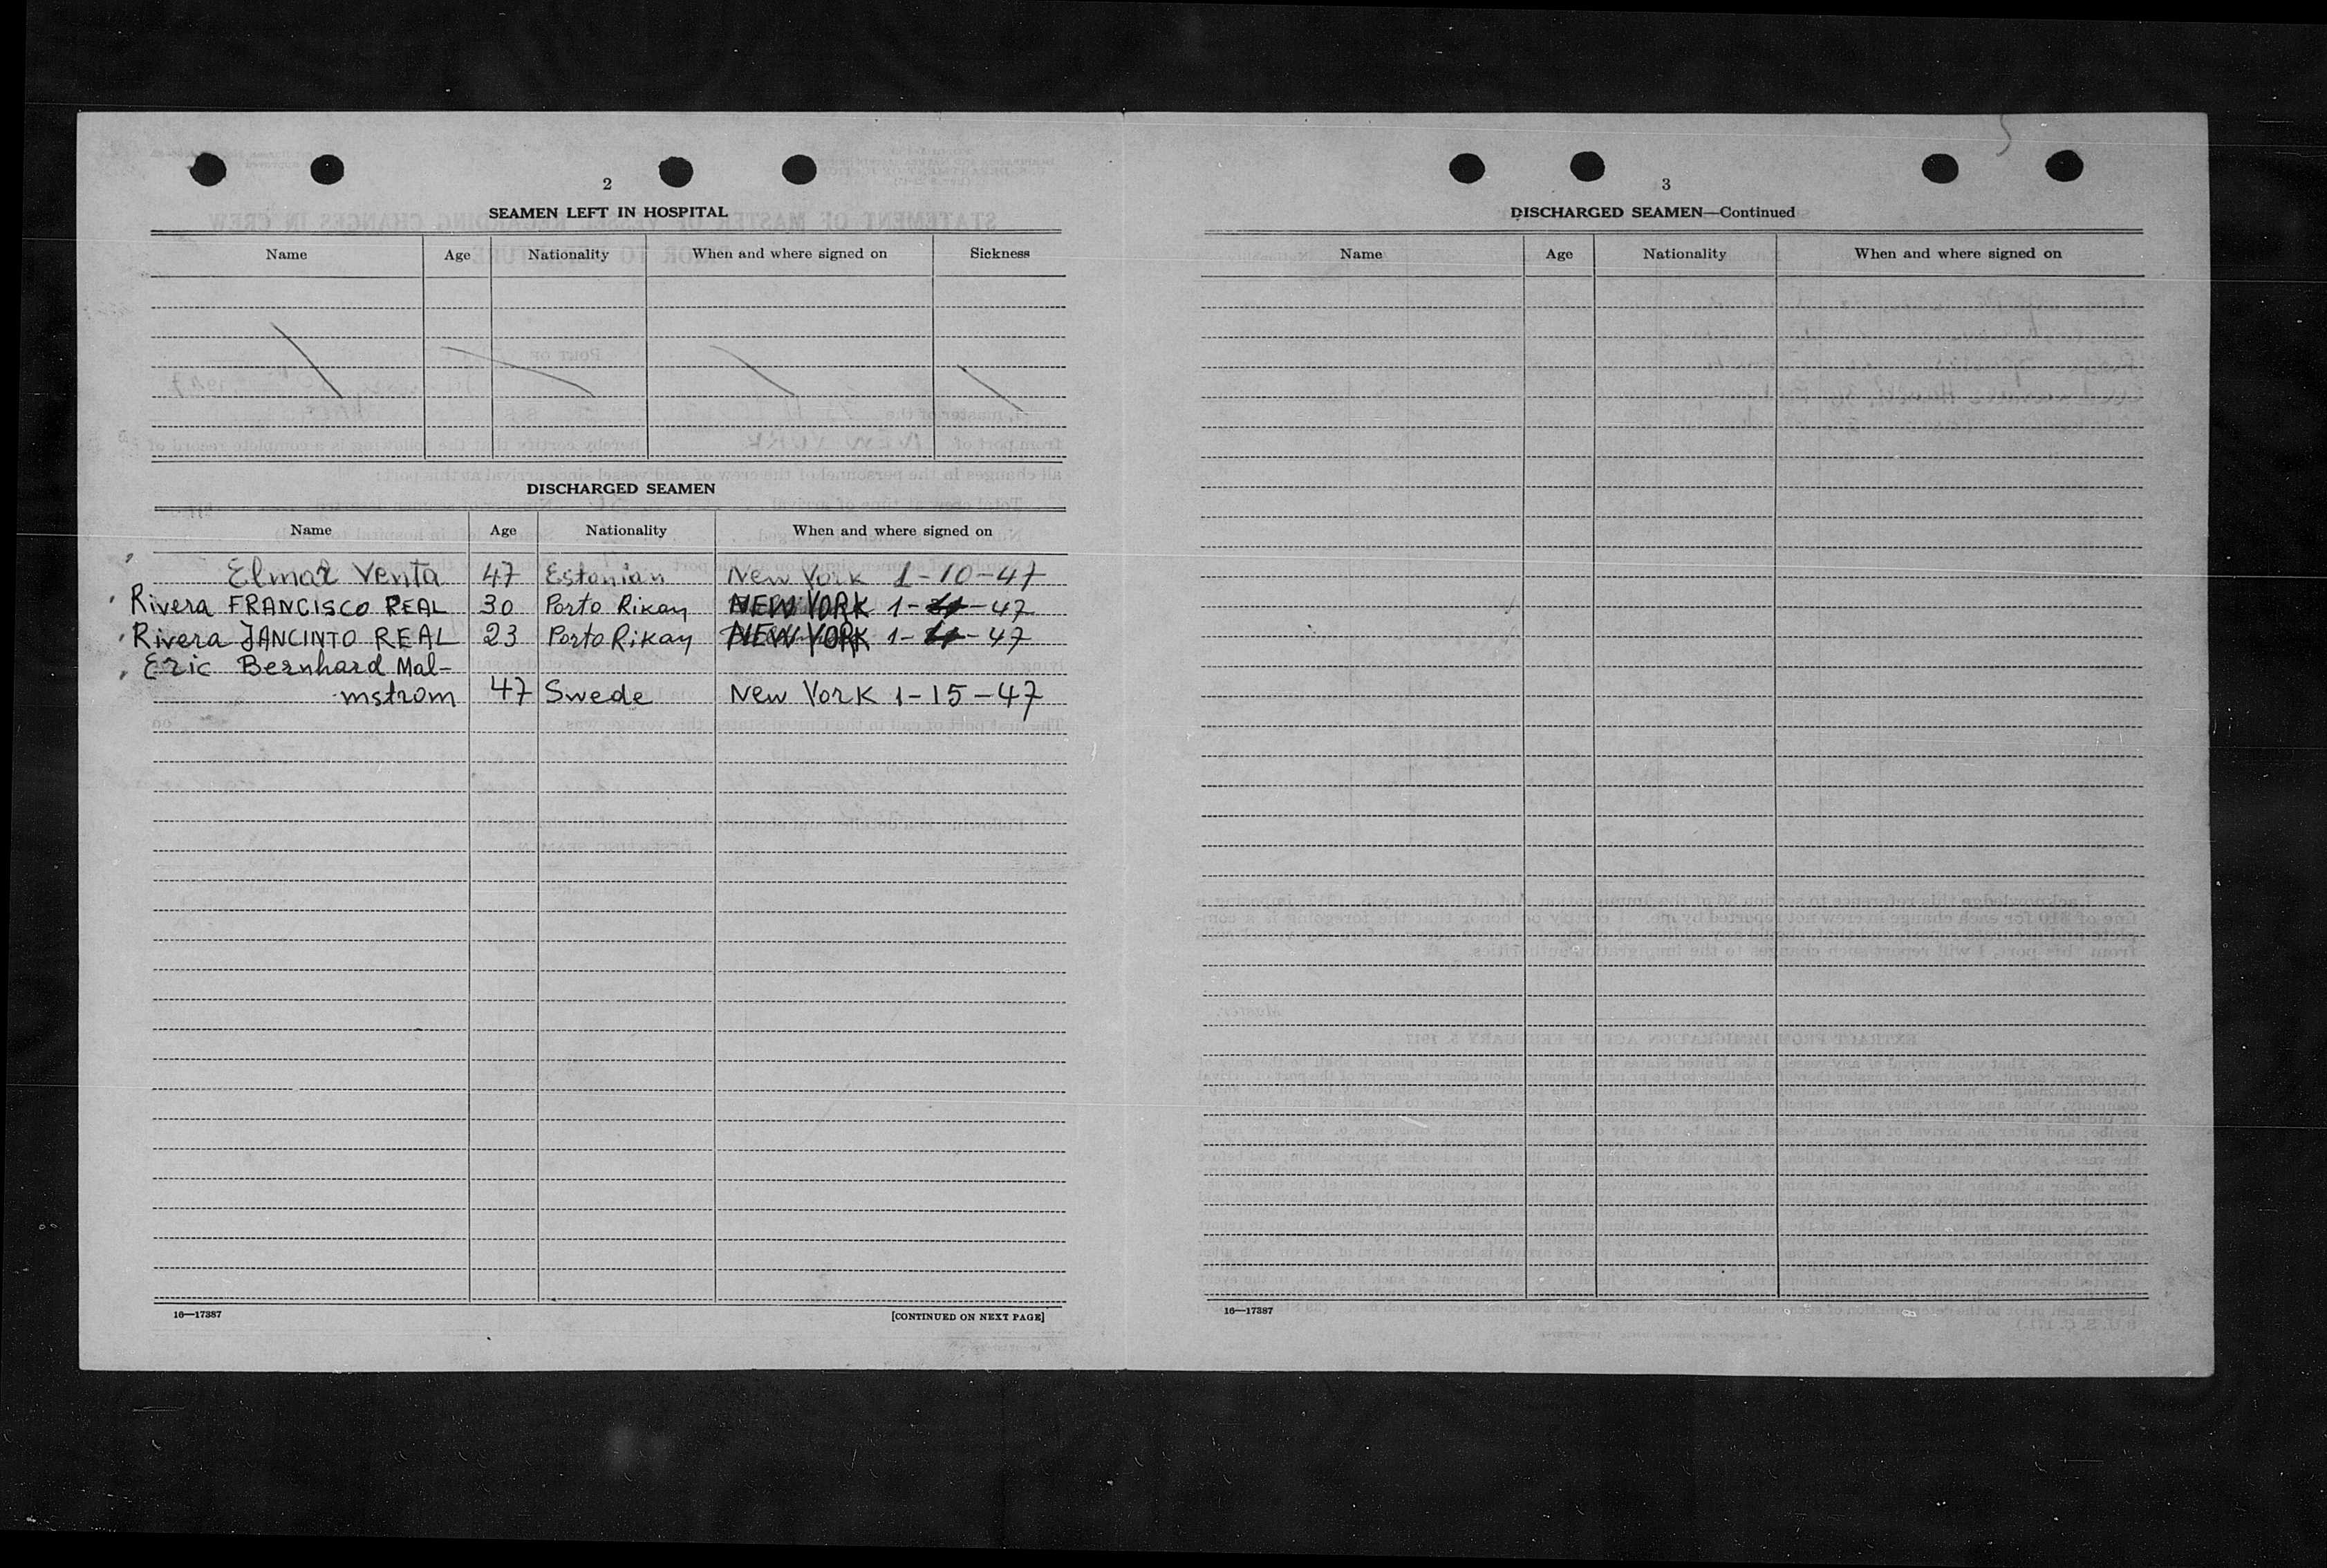 2
SEAMEN LEFT IN HOSPITAL
Name Age Nationality When and where signed on Sickness
DISCHARGED SEAMEN
Name Age Nationality When and where signed on
Elmar Venta 47 Estonian New York 1-10-47
Rivera FRANCISCO REAL 30 Porto Rikan NEW YORK 1- -47
Rivera JANCINTO REAL 23 Porto Rikan NEW YORK 1- -47
Eric Bernhard Mal-
mstrom 47 Swede New York 1-15-47
16—17387 [CONTINUED ON NEXT PAGE]
3
DISCHARGED SEAMEN—Continued
Name Age Nationality When and where signed on
16—17387